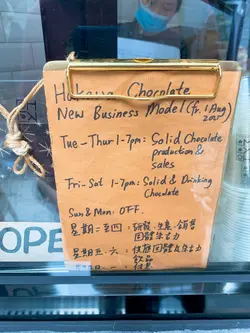 Hakawa Chocolate
New Business Model (fr. 1 Aug
Tue-Thur 1-7pm: Solid Chocolate
production &
sales
Fri-Sat 1-7pm: Solid & Drinking
Chocolate
Sun & Mon: OFF.
星期二至四: 研發、生產、銷售
固體朱古力
星期五、六: 供應固體及朱古力
飲品
OPE